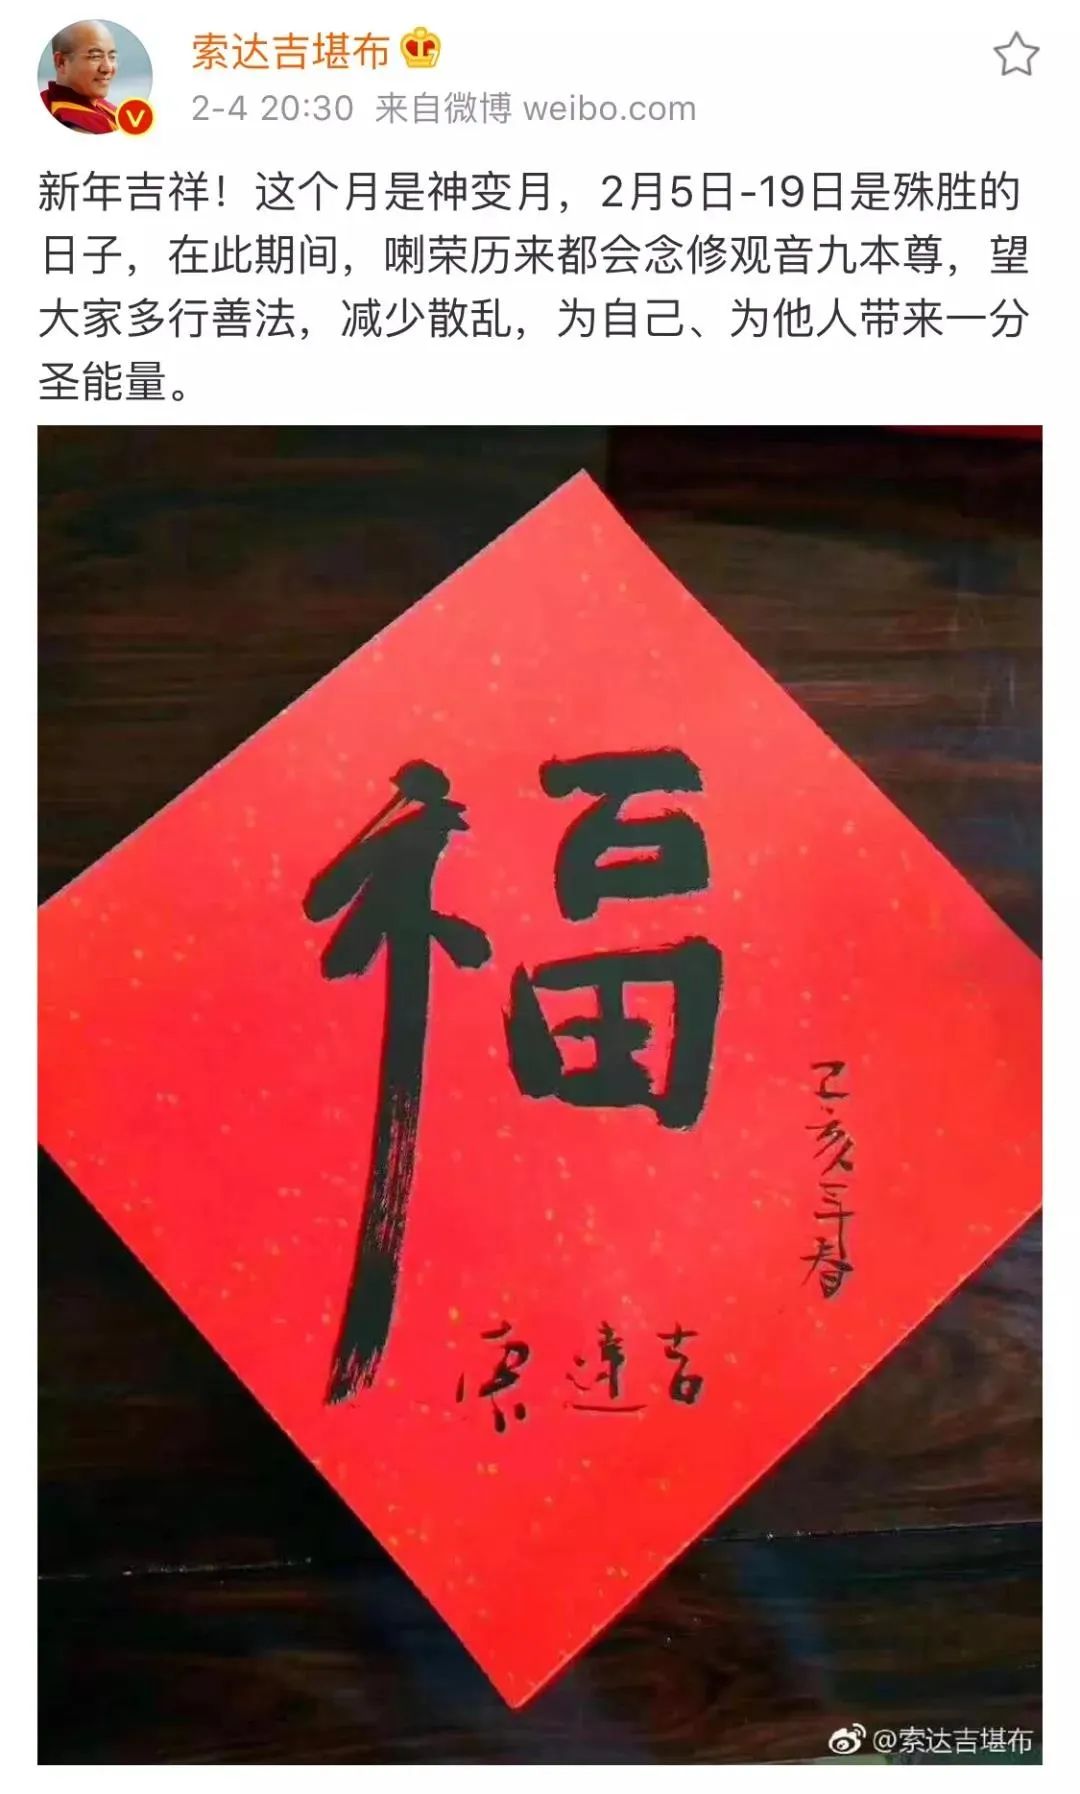 索达吉堪布
2-4 20:30 来自微博 weibo.com
新年吉祥！这个月是神变月，2月5日-19日是殊胜的
日子，在此期间，喇荣历来都会念修观音九本尊，望
大家多行善法，减少散乱，为自己、为他人带来一分
圣能量。
福
己亥年春
索達吉
@索达吉堪布